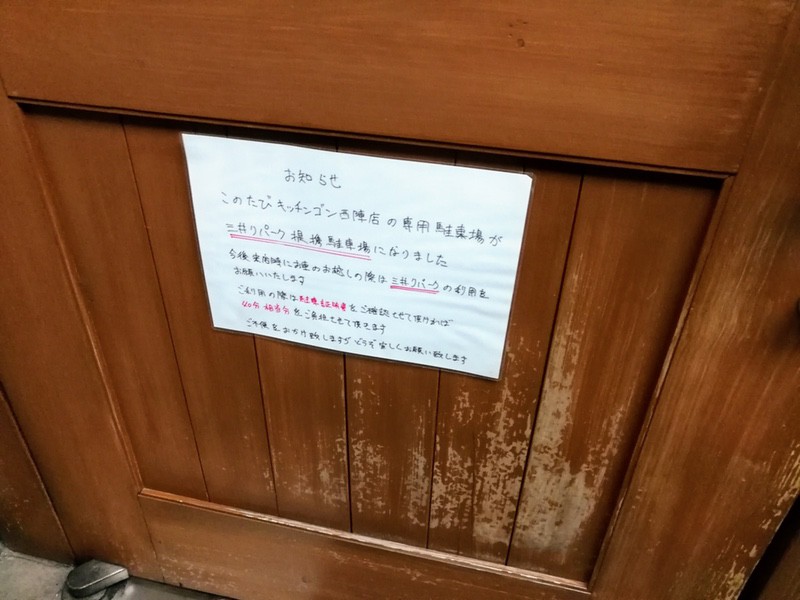 お知らせ
このたび キッチンゴン西陣店 の 専用駐車場が
三井リパーク 提携駐車場になりました
今後 来店時にお車のお越しの際は 三井リパーク の利用を
お願いいたします
ご利用の際は駐車証明書をご確認させて頂ければ
40分 相当分をご負担させて頂きます
ご不便をおかけ致しますが どうぞ宜しくお願い致します